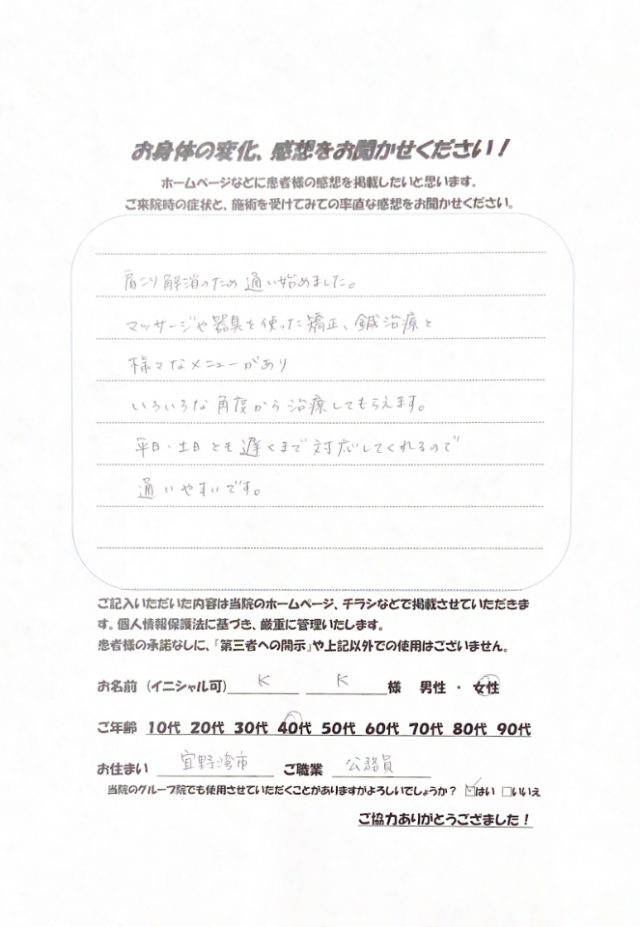 お身体の変化、感想をお聞かせください！
ホームページなどに患者様の感想を掲載したいと思います。
ご来院時の症状と、施術を受けてみての率直な感想をお聞かせください。
肩こり解消のため通い始めました。
マッサージや器具を使った矯正、鍼治療と
様々なメニューがあり
いろいろな角度から治療してもらえます。
平日・土日とも遅くまで対応してくれるので
通いやすいです。
ご記入いただいた内容は当院のホームページ、チラシなどで掲載させていただきま
す。個人情報保護法に基づき、厳重に管理いたします。
患者様の承諾なしに、「第三者への開示」や上記以外での使用はございません。
お名前（イニシャル可） K K 様 男性 ・ 女性
ご年齢 10代 20代 30代 40代 50代 60代 70代 80代 90代
お住まい 宜野湾市 ご職業 公務員
当院のグループ院でも使用させていただくことがありますがよろしいでしょうか？ ☑はい □いいえ
ご協力ありがとうござました！